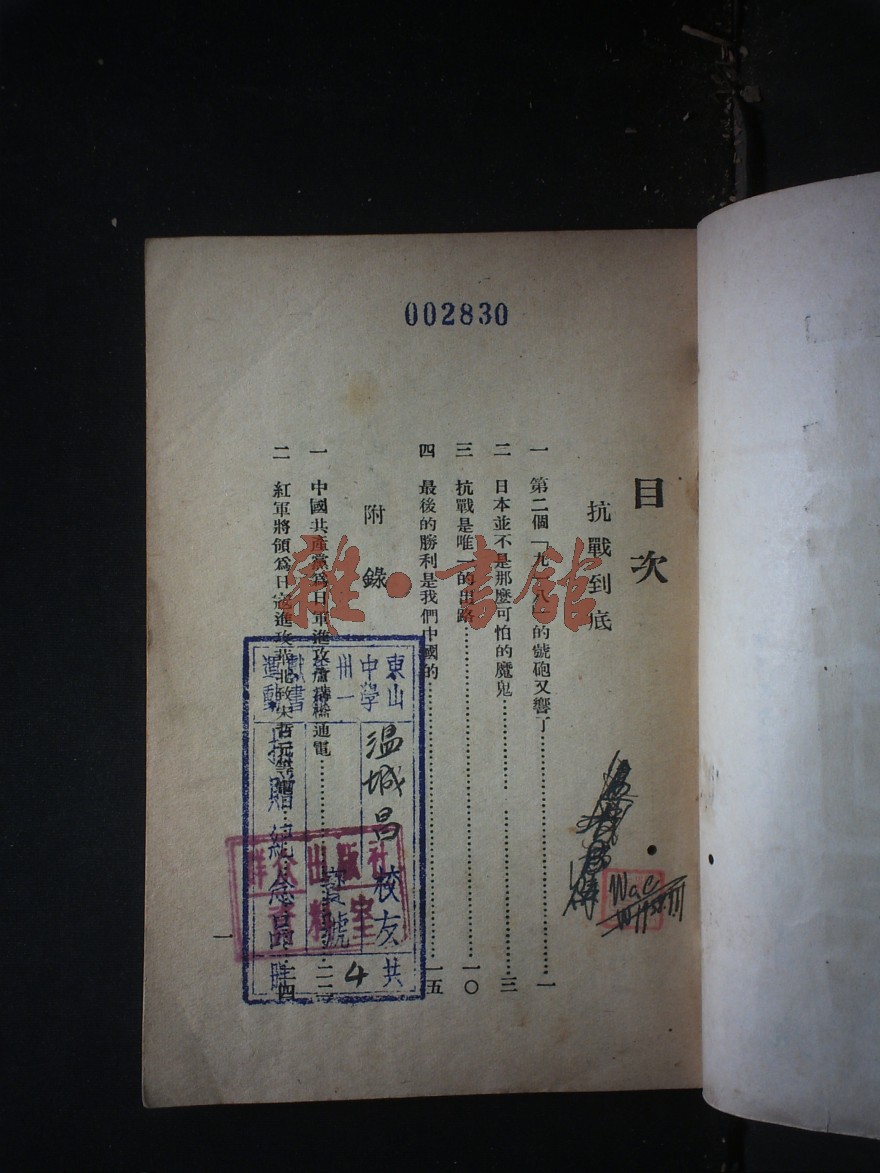 002830
目次
抗戰到底
一 第二個「九一八」的號砲又響了…………一
二 日本並不是那麼可怕的魔鬼…………三
三 抗戰是唯一的出路…………一〇
四 最後的勝利是我們中國的…………一五
附錄
一 中國共產黨為日軍進攻蘆溝橋通電…………二二
二 紅軍將領為日寇進攻華北致宋哲元等
一
雜·書館
東山
中學
卅一
獻書
運動
溫城昌校友共
號4
捐贈
紀念品
群众出版社
資料室